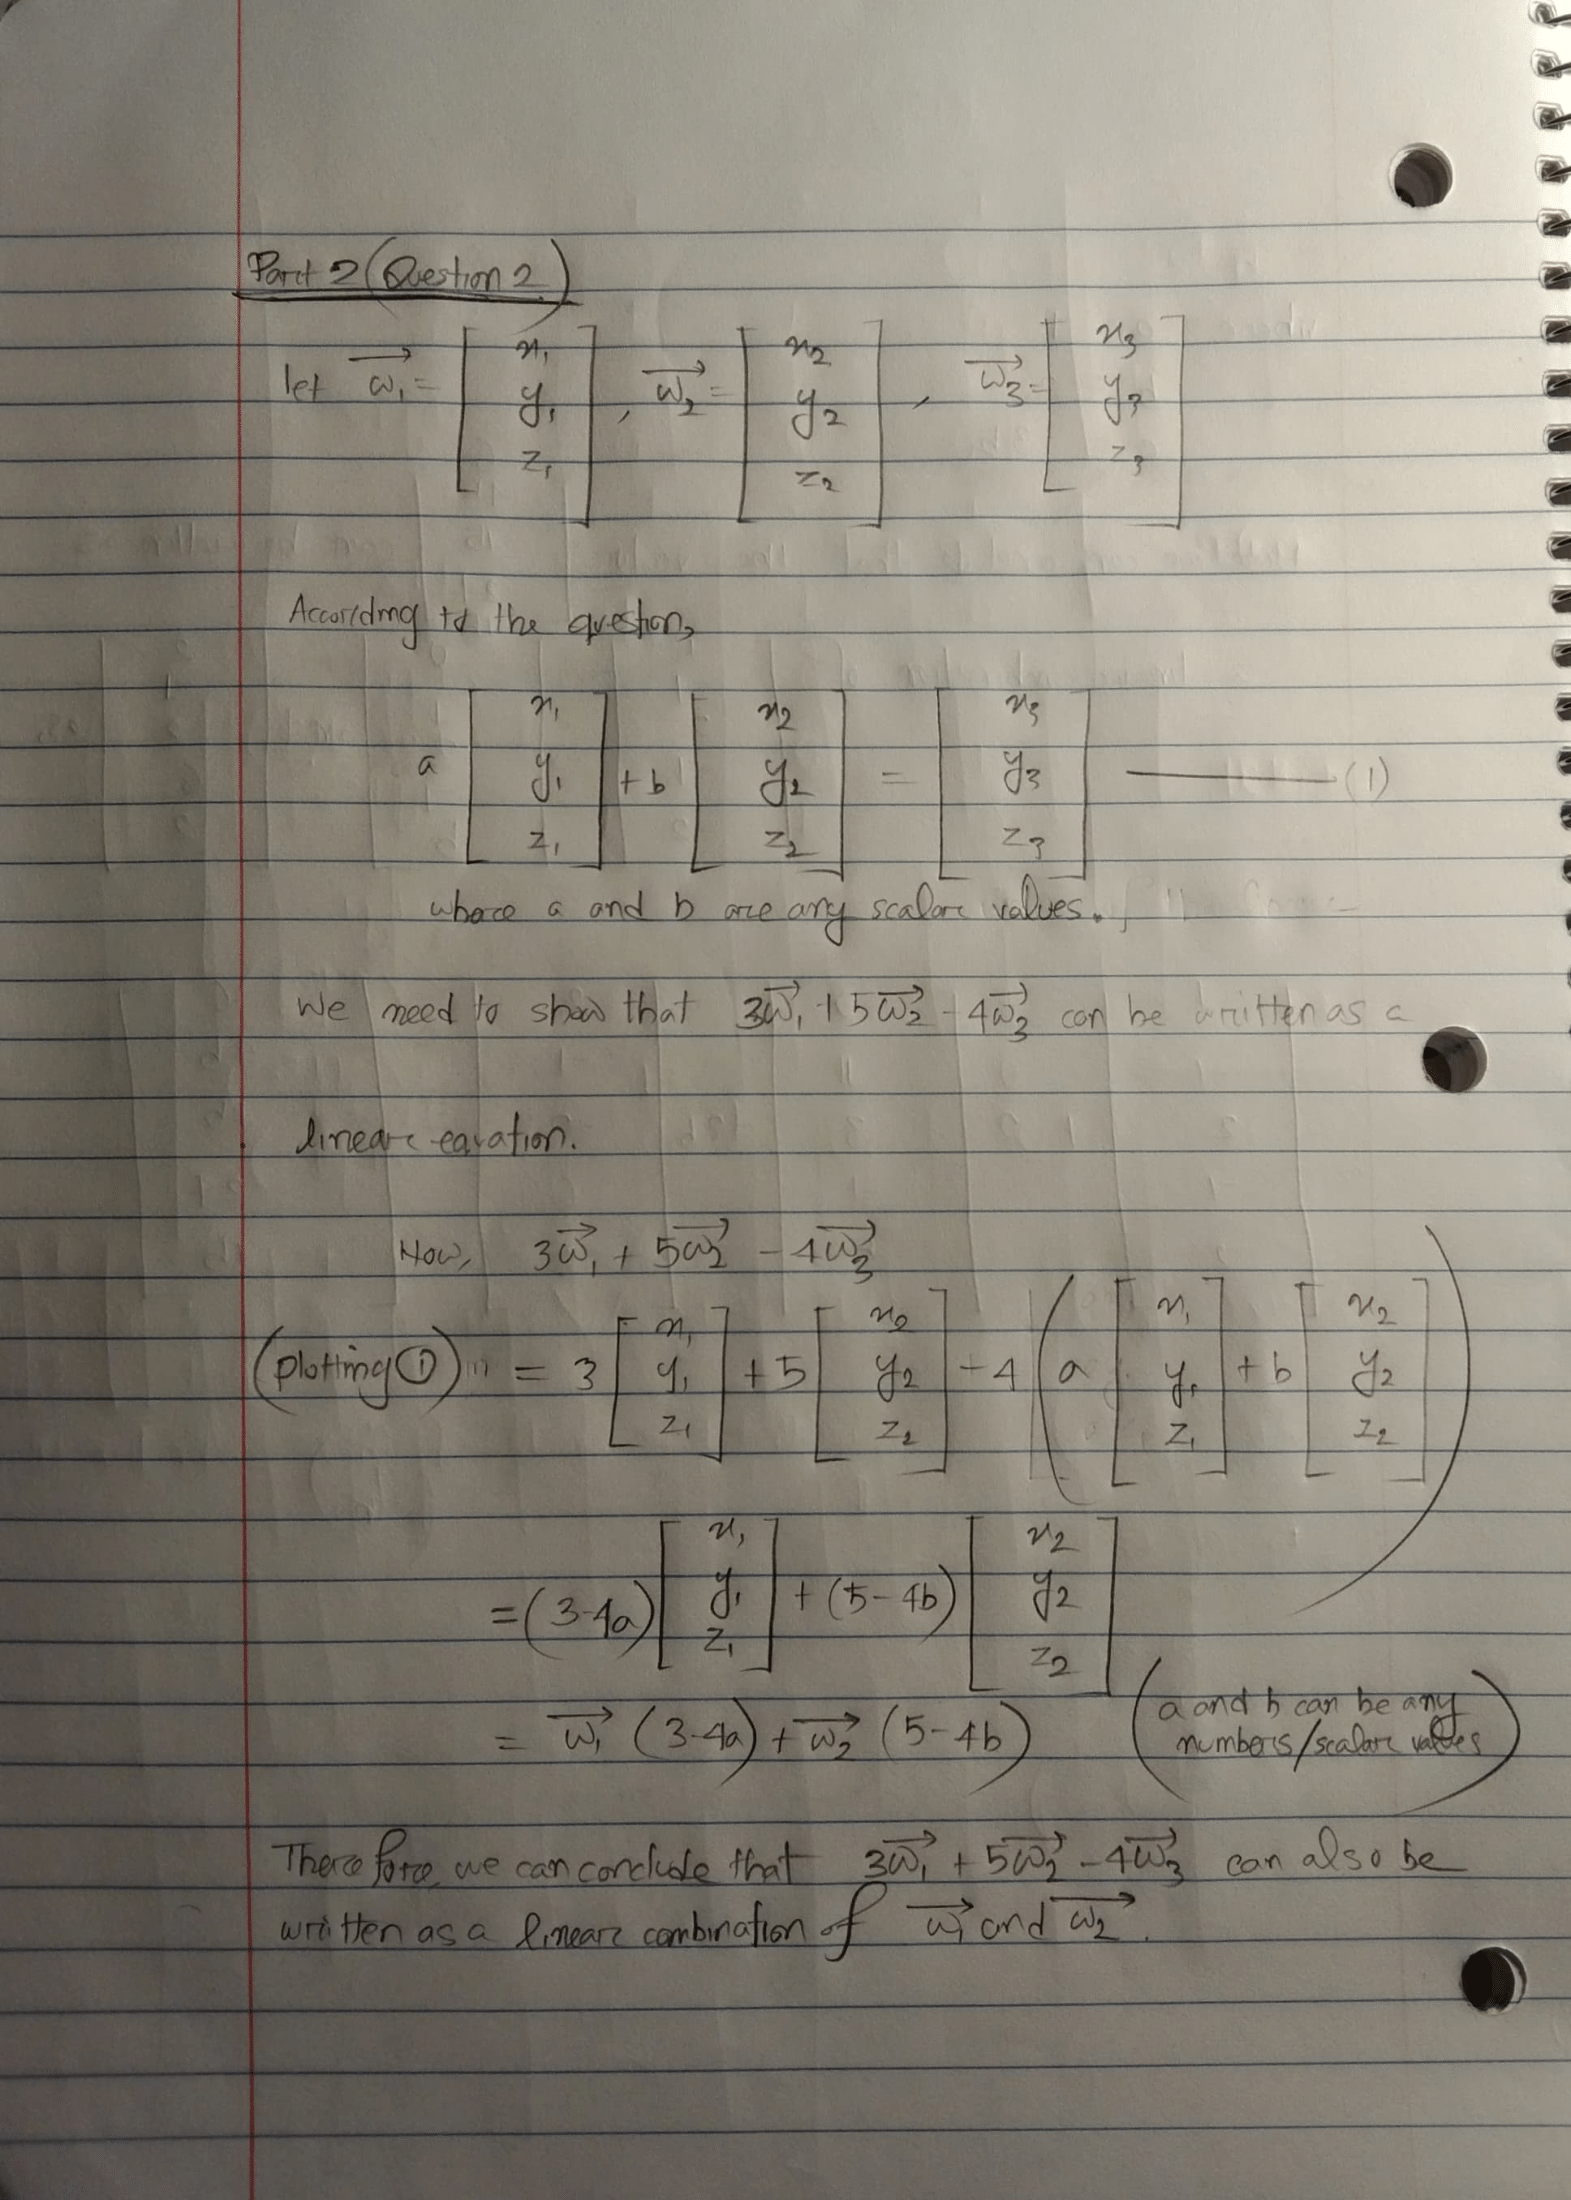 Part 2 (Question 2)
let w₁→ = [x₁ y₁ z₁], w₂→ = [x₂ y₂ z₂], w₃→ = [x₃ y₃ z₃]
According to the question,
a [x₁ y₁ z₁] + b [x₂ y₂ z₂] = [x₃ y₃ z₃] —— (1)
where a and b are any scalar values.
We need to show that 3w₁→ + 5w₂→ - 4w₃→ can be written as a
linear eqation.
Now, 3w₁→ + 5w₂→ - 4w₃→
(plotting ①) = 3 [x₁ y₁ z₁] + 5 [x₂ y₂ z₂] - 4 (a [x₁ y₁ z₁] + b [x₂ y₂ z₂])
= (3-4a) [x₁ y₁ z₁] + (5-4b) [x₂ y₂ z₂]
= w₁→ (3-4a) + w₂→ (5-4b) (a and b can be any
numbers/scalar values)
Therefore, we can conclude that 3w₁→ + 5w₂→ - 4w₃→ can also be
written as a linear combination of w₁→ and w₂→.